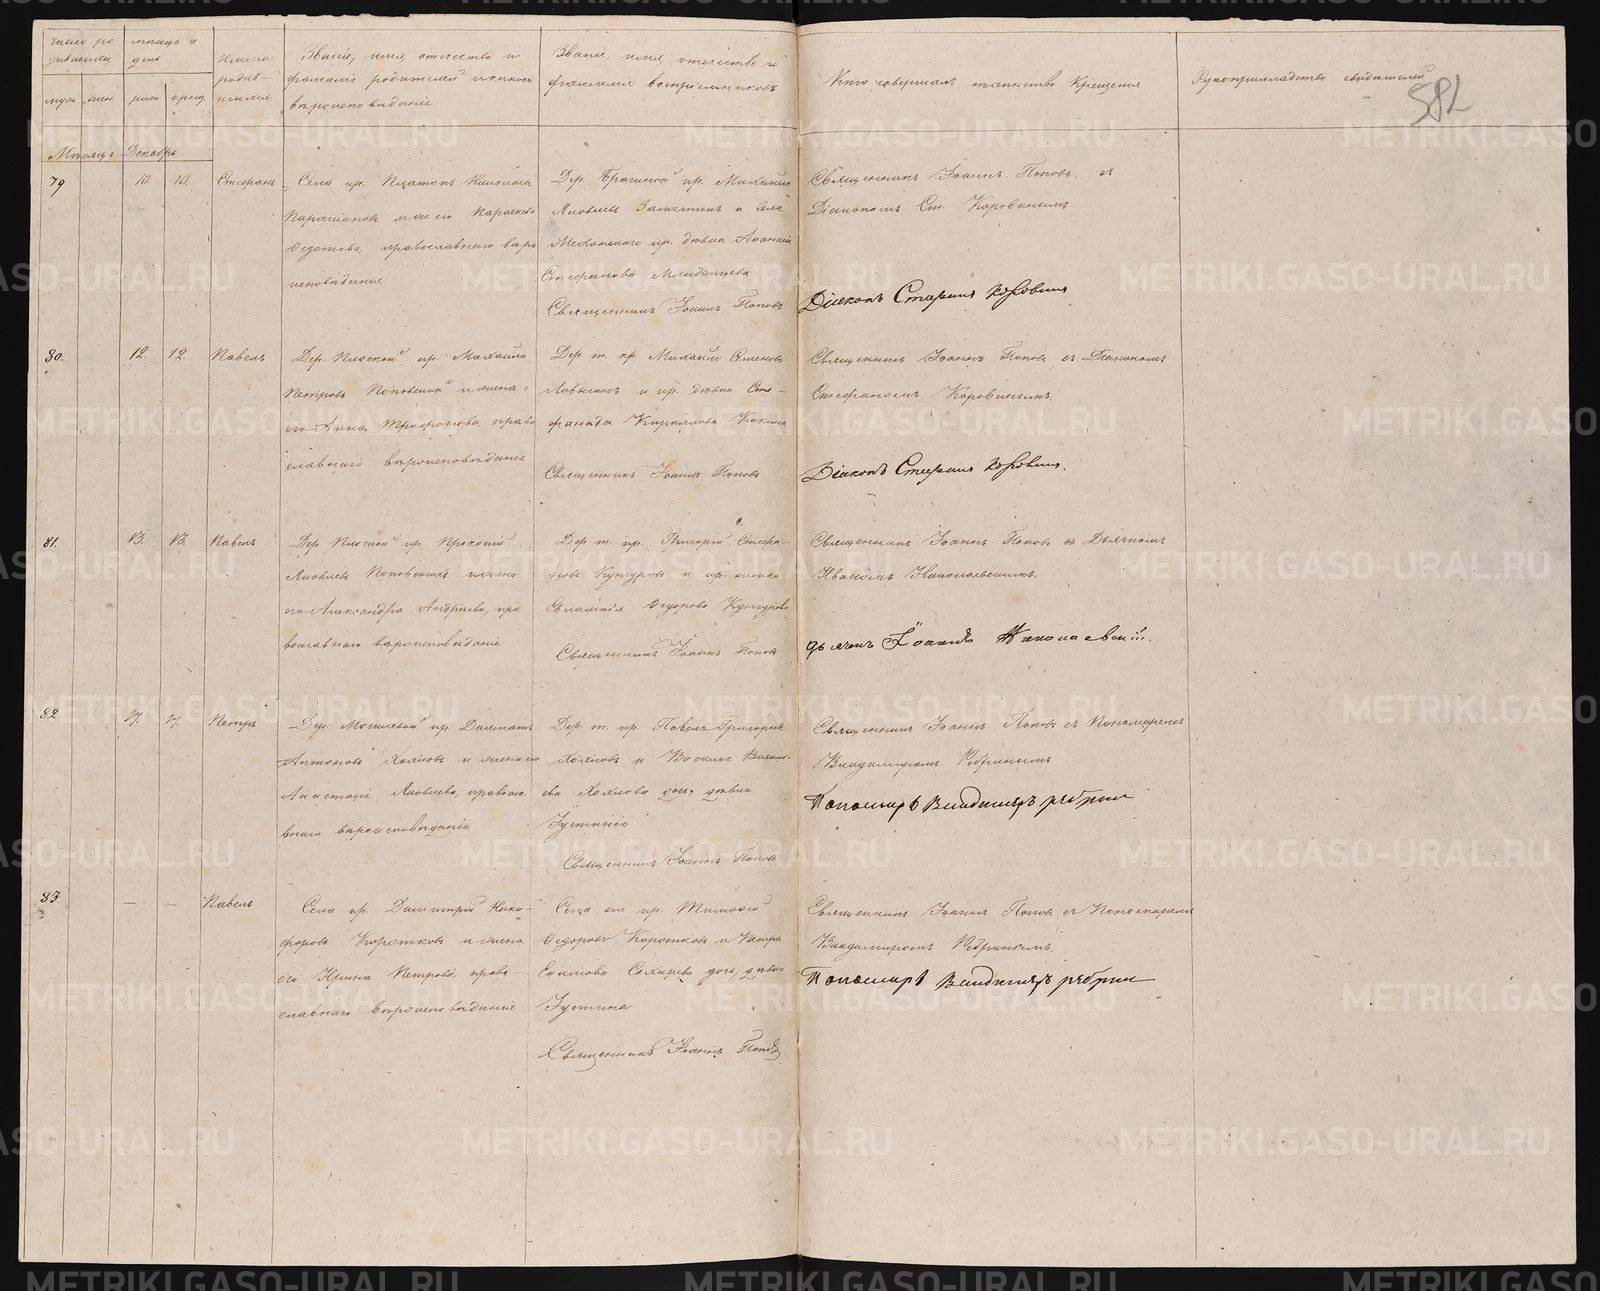 Число ро
дившихся
муж. жен.
Мѣсяцъ и
день
рожд крещ.
Имена
родив-
шихся
Званіе, имя, отчество и
фамилія родителей и какого
вѣроисповѣданія
Званіе, имя, отчество и
фамилія воспріемниковъ
Кто совершалъ таинство Крещенія
Рукоприкладство свидѣтелей
582
Мѣсяцъ Декабрь
79 10. 10. Стефанъ
Села кр. Платонъ
и жена его Параскева
Федотова, православнаго вѣро
исповѣданія
Дер. Брагиной кр. Михаилъ
Яковлевъ Замятинъ и села
кр. дѣвка
Стефанова Младенцева
Священникъ Іоаннъ Поповъ
Священникъ Іоаннъ Поповъ съ
Діакономъ Ст. Коровинымъ
Діаконъ Стефанъ Коровинъ
80. 12. 12. Павелъ
Дер. Плоской кр. Михаилъ
Петровъ Поповской и жена
его Анна Трифонова, право
славнаго вѣроисповѣданія
Дер. т. кр. Михаилъ Семеновъ
и кр. дѣвка Сте-
фанида Кириллова
Священникъ Іоаннъ Поповъ
Священникъ Іоаннъ Поповъ съ Діакономъ
Стефаномъ Коровинымъ.
Діаконъ Стефанъ Коровинъ.
81. 13. 13. Павелъ
Дер. Плоской кр. Прокопій
Яковлевъ Поповской и жена
его Александра Андреева, пра
вославнаго вѣроисповѣданія
Дер. т. кр. Григорій Стефа-
новъ Кунгуровъ и кр. жена
Евлампія Федорова Кунгурова
Священникъ Іоаннъ Поповъ
Священникъ Іоаннъ Поповъ съ Дьячкомъ
Иваномъ Николаевскимъ.
Дьячекъ Іоаннъ Николаевскій.
82 17. 17. Петръ
Дер. Могилевой кр. Далматъ
Антоновъ Хохловъ и жена его
Анастасія Яковлева, правосла
внаго вѣроисповѣданія
Дер. т. кр. Павелъ Григорьевъ
Хохловъ и
Хохлова дочь, дѣвка
Іустинія
Священникъ Іоаннъ Поповъ
Священникъ Іоаннъ Поповъ съ Пономаремъ
Владимиромъ Рябининымъ
Пономарь Владимиръ Рябинин
83 — — Павелъ
Села кр. Димитрій Ники-
форовъ Коротковъ и жена
его Ирина Петрова, право-
славнаго вѣроисповѣданія
Села сего кр. Тимофей
Федоровъ Коротковъ и Петра
дочь, дѣвка
Іустина
Священникъ Іоаннъ Поповъ
Священникъ Іоаннъ Поповъ съ Пономаремъ
Владимиромъ Рябининымъ.
Пономарь Владимиръ Рябинин